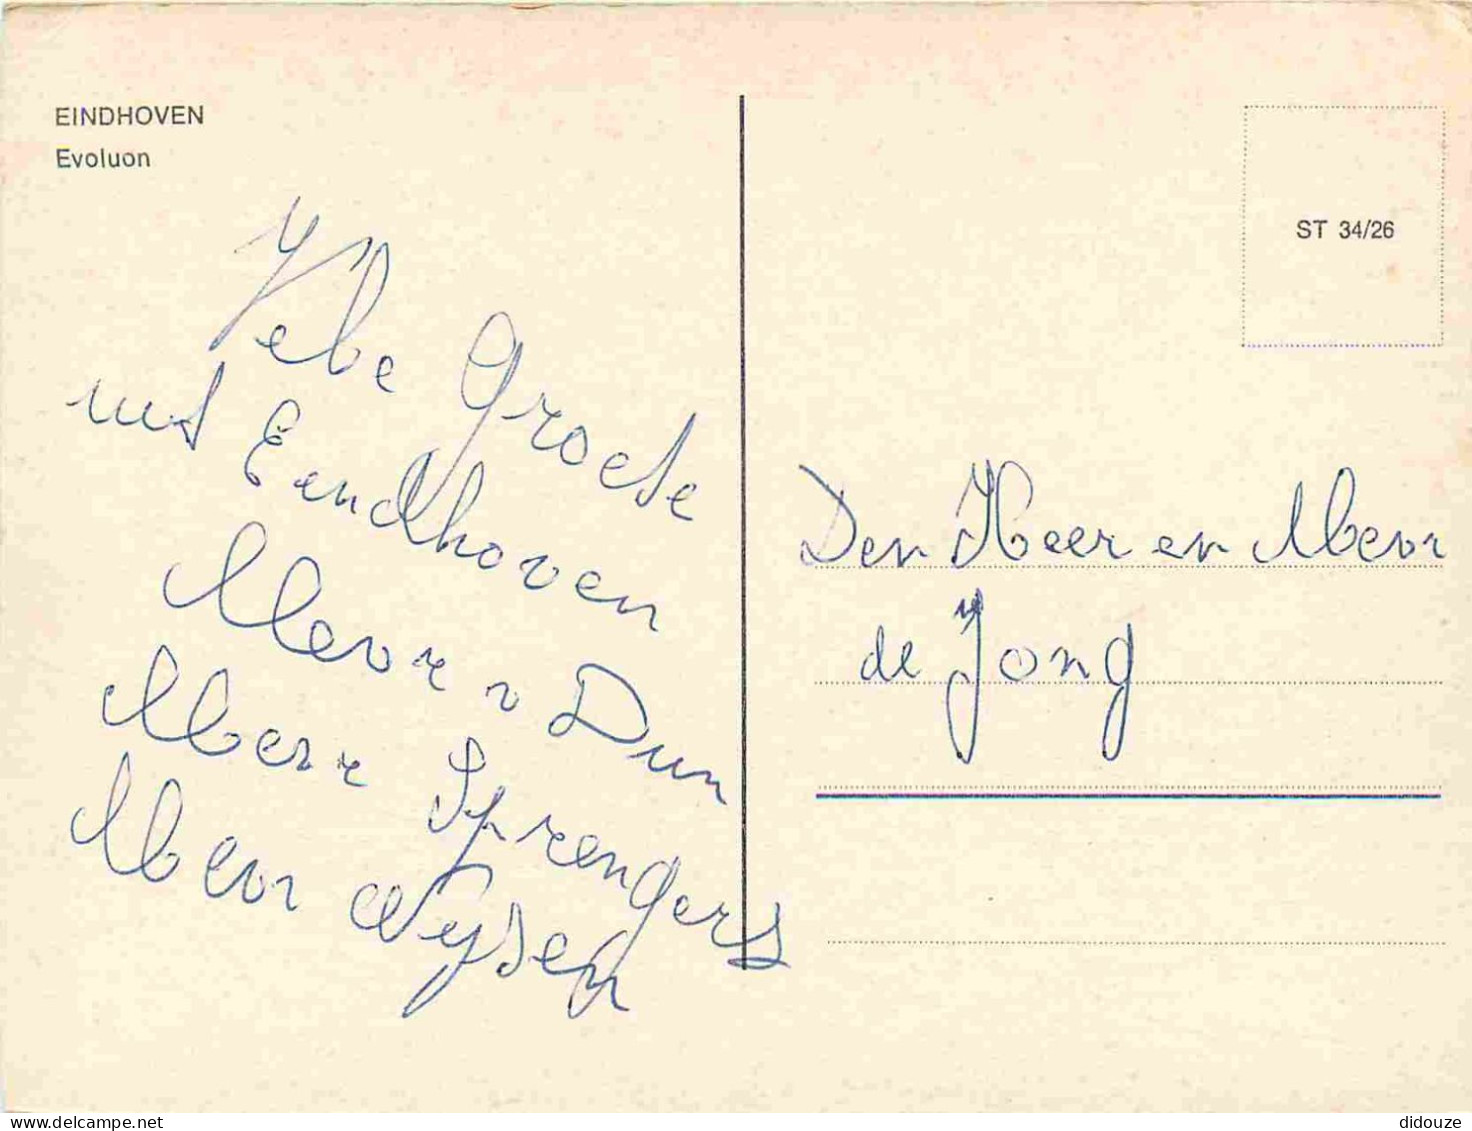 EINDHOVEN
Evoluon
ST 34/26
Vele Groete
uit Eindhoven
Mevr v Dun
Mevr Sprengers
Mevr Wijsen
Den Heer en Mevr
de Jong
didouze